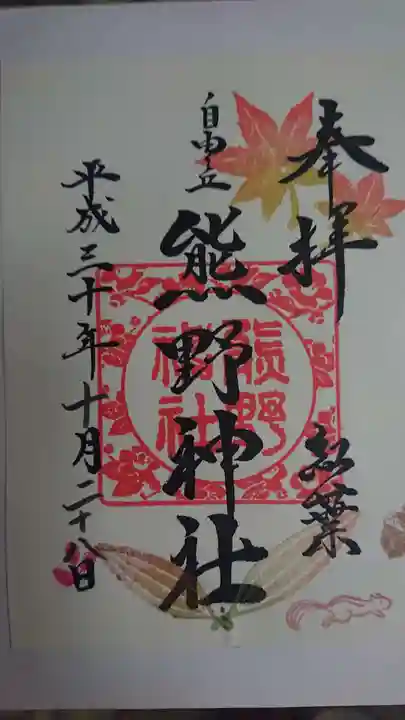 奉拝
紅葉
自由が丘
熊野神社
熊野
神社
平成三十年十月二十八日